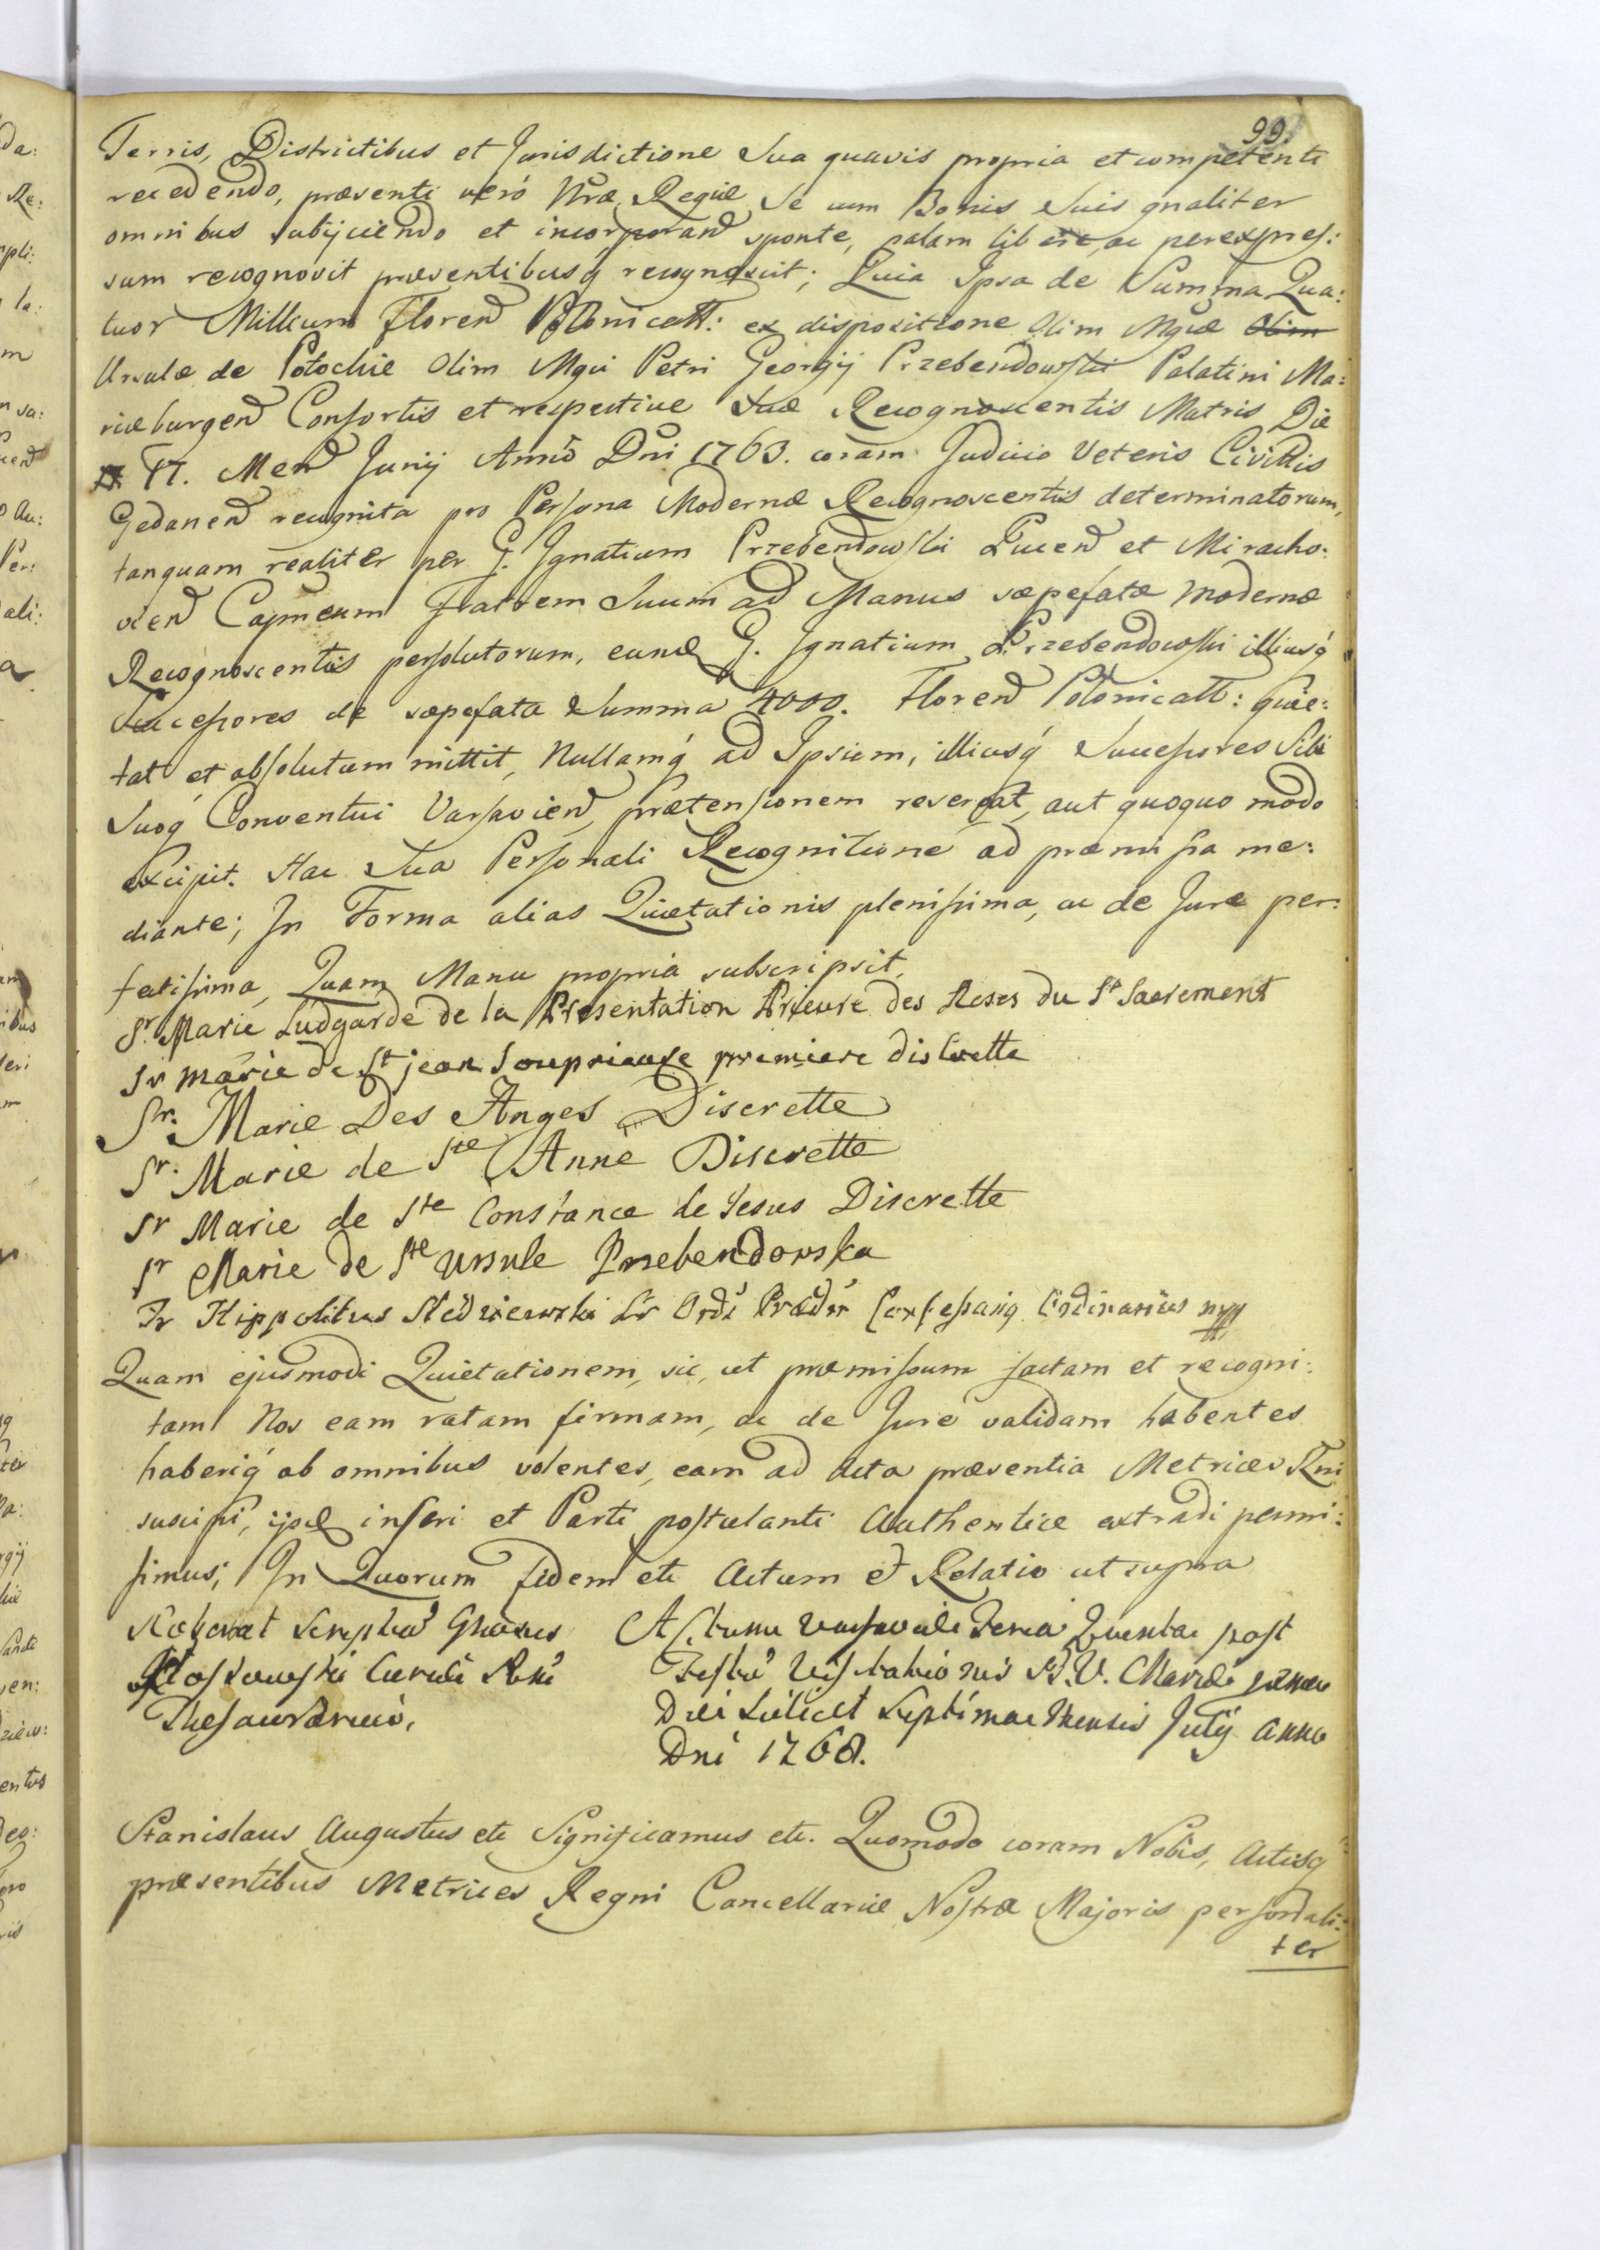 99.
Terris, Districtibus et Jurisdictione Sua quavis propria et competenti
recedendo, præsenti verò Nræ Regiæ Se cum Bonis Suis gnaliter
omnibus subijciendo et incorporand sponte, palam libere, ac perexpres:
sum recognovit præsentibusq recognoscit; Quia Ipsa de Summa Qua:
tuor Millium Floren Polonicall: ex dispositione Olim Mgcæ Olim
Ursulæ de Potockie Olim Mgci Petri Georgij Przebendowski Palatini Ma:
riæburgen Consortis et respective Suæ Recognoscentis Matris Die
17. Men Junij Anno Dni 1763. coram Judicio Veteris Civittis
Gedanen recognita pro Persona Modernæ Recognoscentis determinatorum,
tanquam realiter per G. Ignatium Przebendowski Pucen et Miracho:
vien Capneum Fratrem Suum ad Manus sæpefatæ Modernæ
Recognoscentis persolutorum, eund G. Ignatium Przebendowski illiusq
Successores de sæpefata Summa 4000. Floren Polonicall: quie:
tat et absolutum mittit, Nullamq ad Ipsum, illiusq Successores Sibi
Suoq Conventui Varsavien, prætensionem reservat, aut quoquo modo
excipit. Hac Sua Personali Recognitione ad præmissa me:
diante; In Forma alias Quietationis plenissima, ac de Jure per:
fectissima, Quam Manu propria subscripsit.
Sr. Marie Ludgarde de la Presentation Prieure des Reses du St Sacrement
Sr marie de St jean Souprieure premiere discrette
Sr. Marie Des Anges Discrette
Sr. Marie de Ste Anne Discrette
Sr Marie de Ste Constance de Jesus Discrette
Sr Marie de Ste Ursule Przebendowska
Fr Hippolitus Ordi Prædr Confessariq Ordinarius mpp
Quam ejusmodi Quietationem, sic, ut præmissum factam et recogni:
tam Nos eam ratam firmam, ac de Jure validam habentes
haberiq ab omnibus volentes, eam ad Acta præsentia Metrices Rni
suscipi, ijsd inseri et Parti postulanti Authentice extradi permi:
simus; In Quorum fidem etc Actum et Relatio ut supra
Roborat Scriptus Gnosus
Curiæ Rni
Thesaurarius.
Actum Varsaviæ Feria Quinta post
Festu Visitationis B.V. Mariæ
Die Scilicet Septima Mensis Julij Anno
Dni 1768.
Stanislaus Augustus etc Significamus etc. Quomodo coram Nobis, Actisq
præsentibus Metrices Regni Cancellariæ Nostræ Majoris personali:
ter